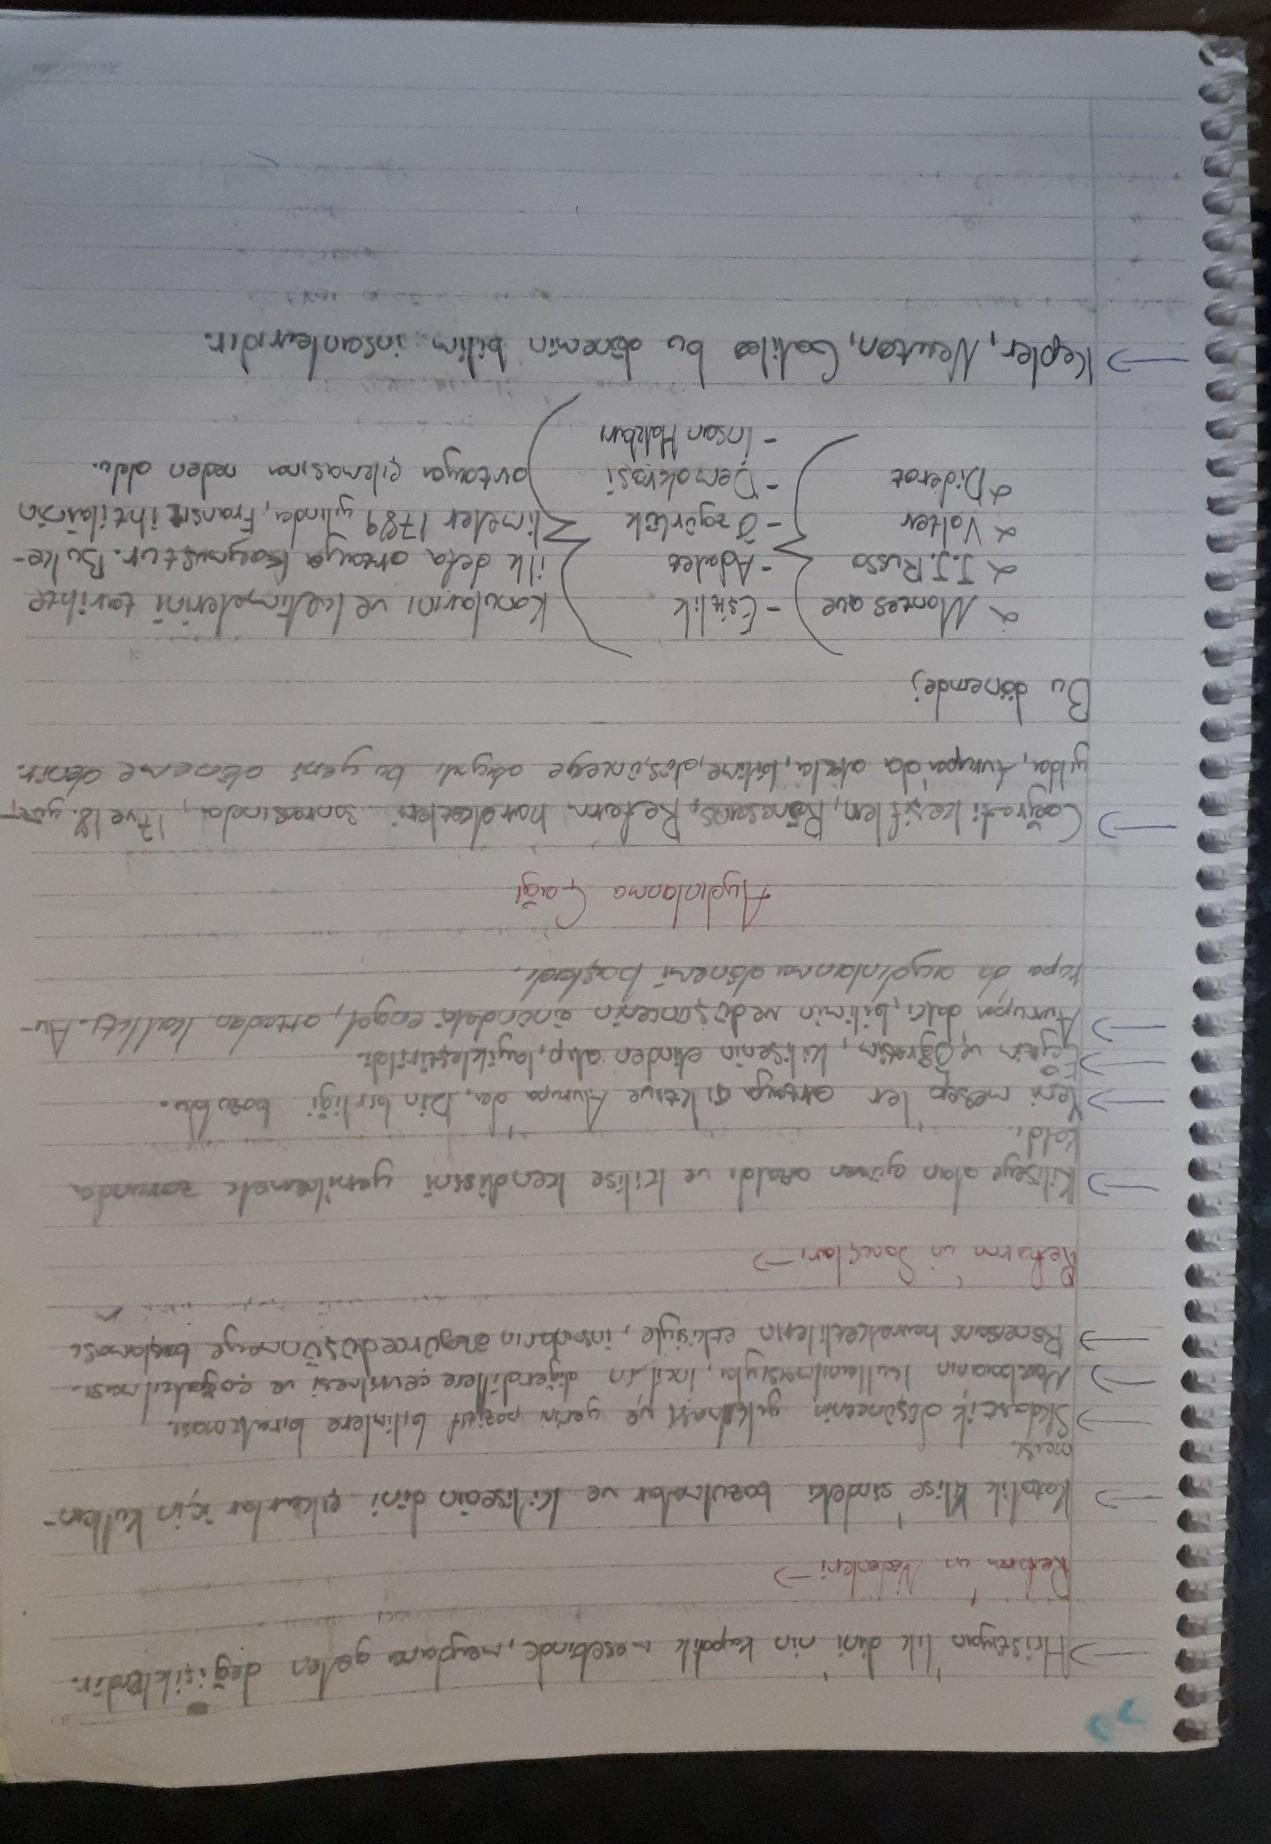 → Hristiyan'lık dini'nin kapolik mesebinde, meydana gelen değişiklerdir.
Reform'un Nedenleri →
→ Katolik klise'sindeki bozulmalar ve kilisenin dini çıkarlar için kullan-
ması
→ Skolastik düşüncenin yıkılması ve yerini pozitif bilimlere bırakması.
→ Matbaanın kullanılmasıyla, incil'in diğer dillere çevrilmesi ve çoğaltılması.
→ Rönesans hareketlerin etkisiyle, insanların özgürce düşünmeye başlaması
Reform'un Sonuçları →
→ Kiliseye olan güven azaldı ve kilise kendisini yenilemek zorunda
kaldı.
→ Yeni mesep'ler ortaya çıktı ve Avrupa'da, Din birliği bozuldu.
→ Eğitim ve öğretim, kilisenin elinden alıp, layikleştirildi.
→ Avrupa'daki, bilimin ve düşüncenin önündeki engel, ortadan kalktı. Av-
rupa da aydınlanma dönemi başladı.
Aydınlanma Çağı
→ Coğrafi keşifler, Rönesans, Reform hareketleri sonrasında, 17 ve 18. yüz-
yılda, Avrupa'da akıla, bilime, düşünceye dayalı bu yeni döneme denir.
Bu dönemde;
α Montesque - Eşitlik Konularını ve kelimelerini tarihte
α J.J. Russo - Adalet ilk defa ortaya koymuştur. Bu ke-
α Volter - Özgürlük limeler 1789 yılında, Fransız ihtilalinin
α Diderot - Demokrasi ortaya çıkmasına neden oldu.
- İnsan Hakları
→ Kepler, Newton, Galileo bu dönemin bilim insanlarıdır.